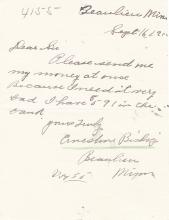 4155
Beaulieu Minn
Sept 16 192
Dear Sir
Please send me
my money at once
because I need it very
bad I have $5 91 in the
bank
yours truly
Ernestine
Beaulieu
Minn